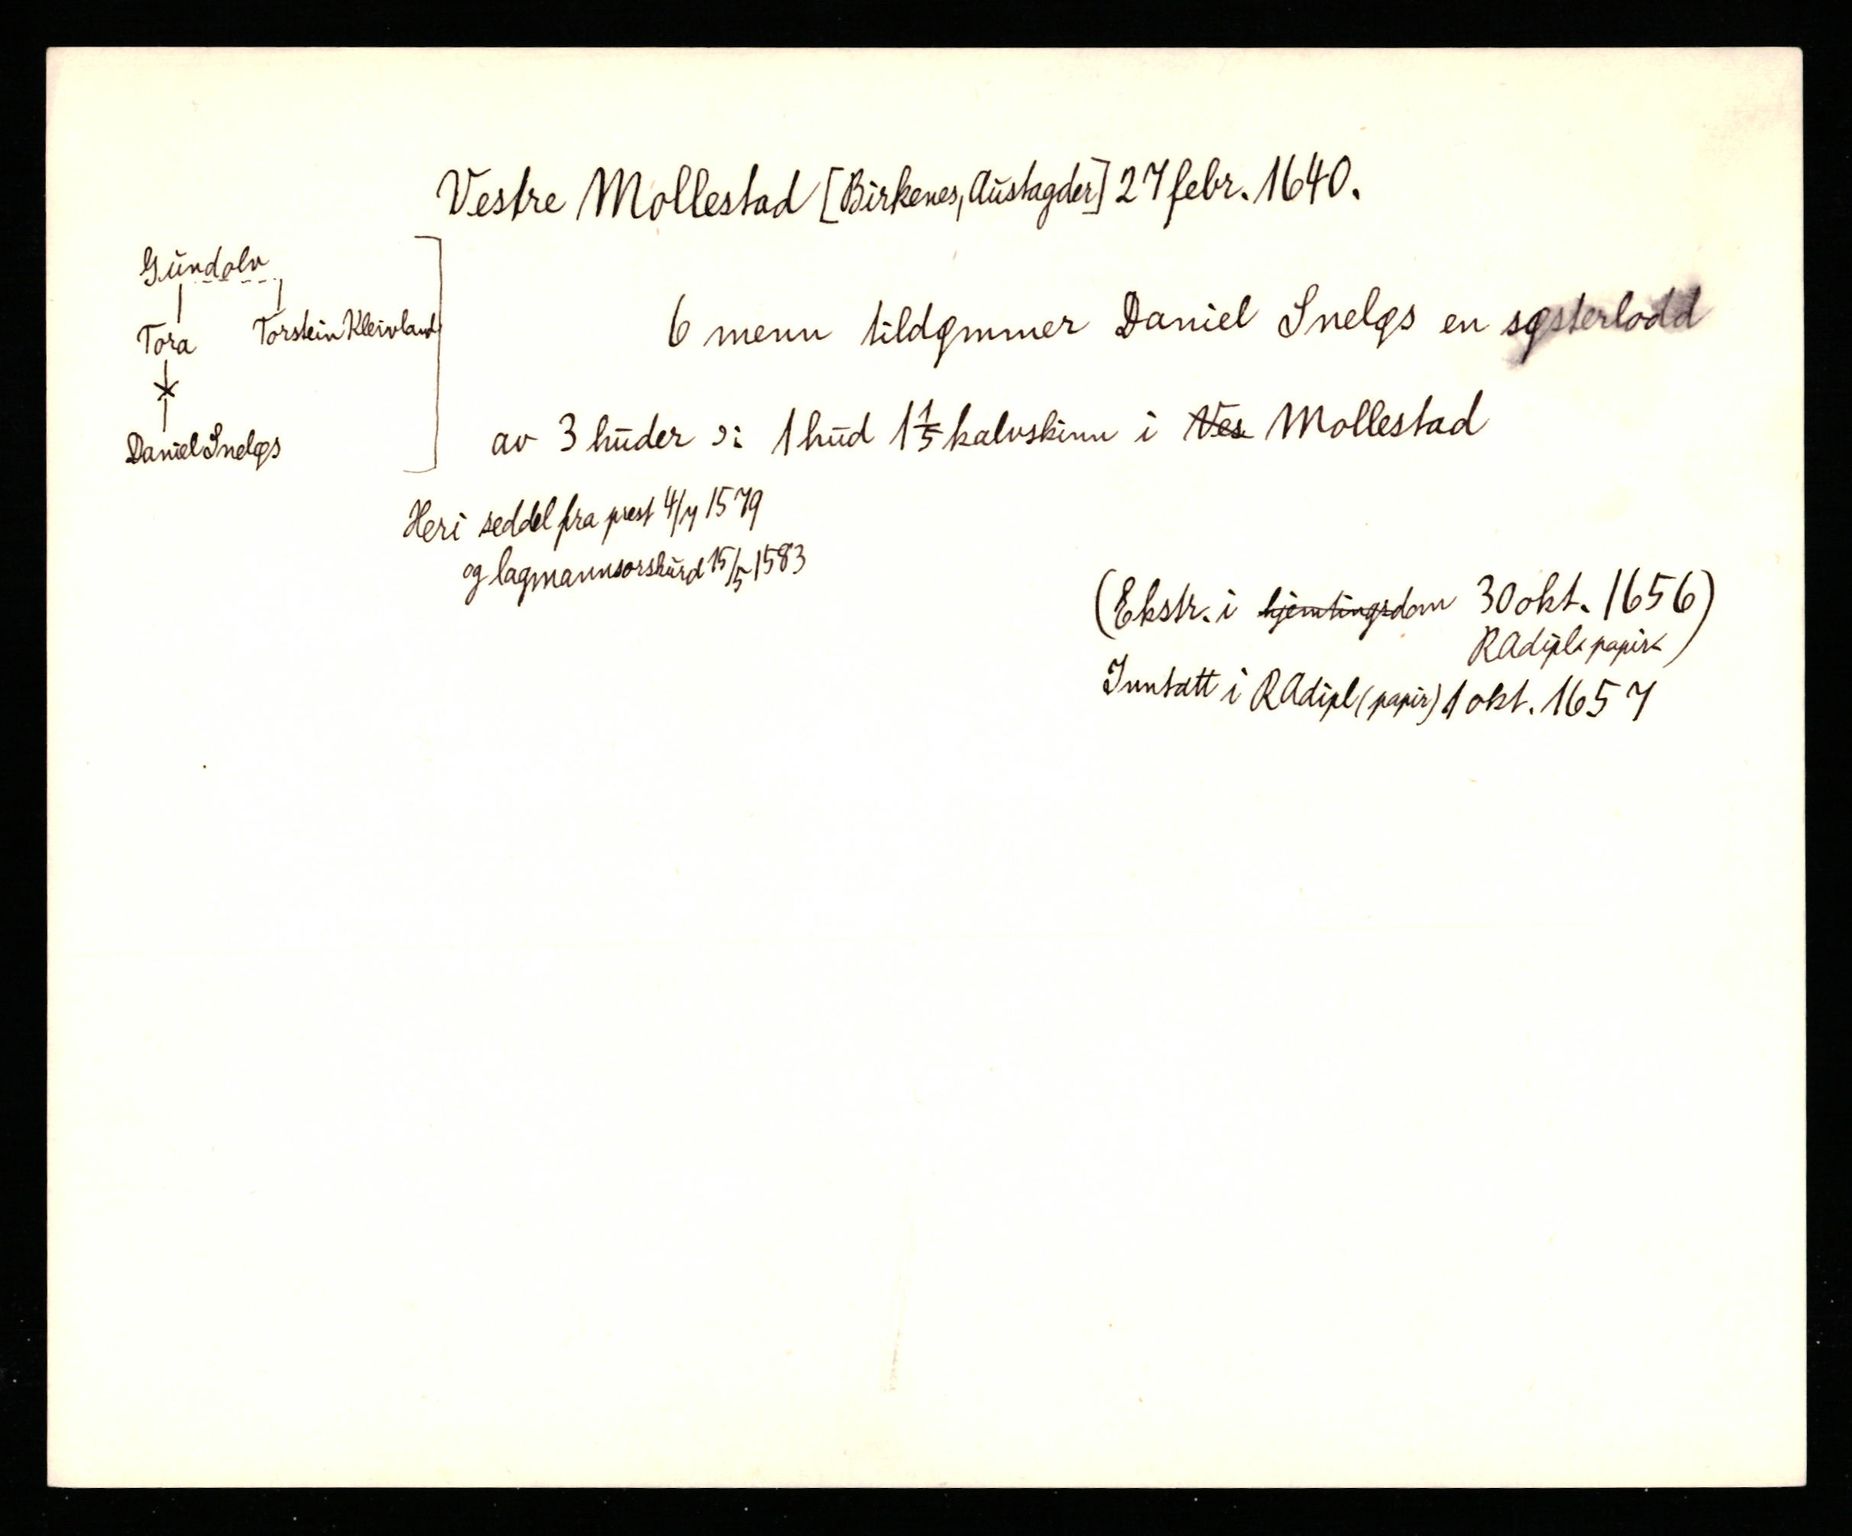 Vestre Mollestad [Birkenes, Austagder] 27 febr. 1640.
Gundolv
Tora Torstein Kleivland
Daniel Sneløs
6 menn tildømmer Daniel Sneløs en søsterlodd
av 3 huder ɔ: 1 hud 1 1/5 kalvskinn i Ves Mollestad
Heri seddel fra prest 4/7 1579
og lagmannsorskurd 15/5 1583
(Ekstr. i hjemtingsdom 30 okt. 1656)
RAdipl< papir<
Inntatt i RAdipl (papir) 1 okt. 1657